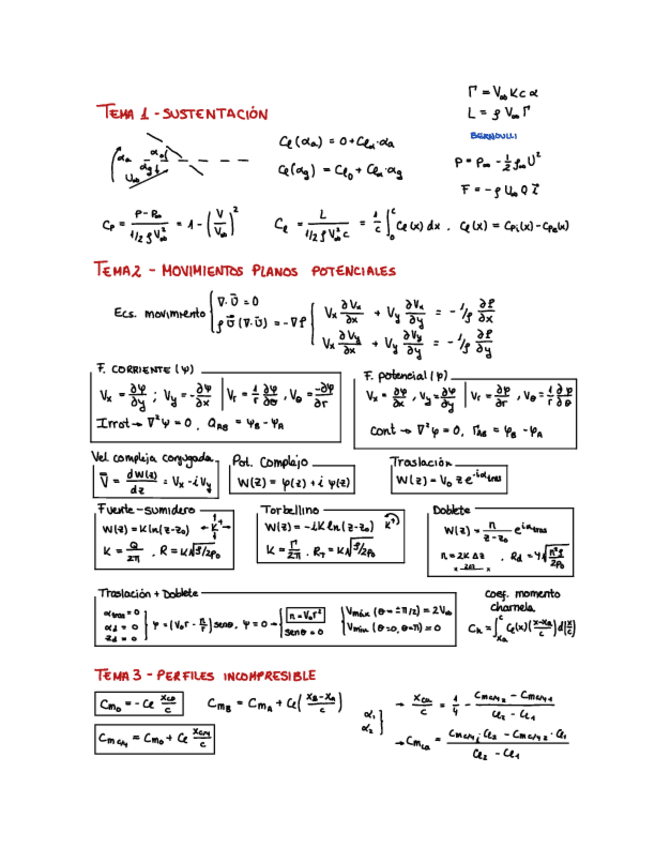 Γ = V∞ K c α
TEMA 1 - SUSTENTACIÓN
L = ρ V∞ Γ
BERNOULLI
Cl(αa) = 0 + Clα·αa
αa αo αg U∞
P = P∞ - 1/2 ρ∞ U²
Cl(αg) = Cl0 + Clα·αg
F = -ρ U∞ Q i
Cp = (P - P∞)/(1/2 ρ V∞²) = 1 - (V/V∞)²
Cl = L/(1/2 ρ V∞² c) = 1/c ∫₀^c Cl(x) dx , Cl(x) = Cpi(x) - Cpe(x)
TEMA 2 - MOVIMIENTOS PLANOS POTENCIALES
Ecs. movimiento { ∇·U = 0
ρ U (∇·U) = -∇P
Vx ∂Vx/∂x + Vy ∂Vx/∂y = -1/ρ ∂P/∂x
Vx ∂Vy/∂x + Vy ∂Vy/∂y = -1/ρ ∂P/∂y
F. CORRIENTE (ψ)
Vx = ∂ψ/∂y ; Vy = -∂ψ/∂x | Vr = 1/r ∂ψ/∂θ , Vθ = -∂ψ/∂r
Irrot → ∇²ψ = 0 , QAB = ψB - ψA
F. potencial (φ)
Vx = ∂φ/∂x , Vy = ∂φ/∂y | Vr = ∂φ/∂r , Vθ = 1/r ∂φ/∂θ
Cont → ∇²φ = 0 , ΓAB = φB - φA
Vel compleja conjugada
V = dW(z)/dz = Vx - i Vy
Pot. Complejo
W(z) = φ(z) + i ψ(z)
Traslación
W(z) = V0 z e^-iαtras
Fuente - sumidero
W(z) = K ln(z-z0) K+
K = Q/2π , R = K√(ρ/2p0)
Torbellino
W(z) = -iK ln(z-z0) K+
K = Γ/2π , RT = K√(ρ/2p0)
Doblete
W(z) = n/(z-z0) e^iαtras
n = 2K Δz , Rd = ∜(n²ρ/2p0)
Traslación + Doblete
αtras = 0
αd = 0
zd = 0
ψ = (V0 r - n/r) senθ , ψ = 0 → { n = V0 r²
senθ = 0
Vmáx (θ = ±π/2) = 2V∞
Vmin (θ=0, θ=π) = 0
coef. momento
charnela
Ch = ∫xa^c Cl(x) (x-xa/c) d(x/c)
TEMA 3 - PERFILES INCOMPRESIBLE
Cm0 = -Cl xcp/c
CmB = CmA + Cl (xB-xA/c)
α1
α2
→ xca/c = 1/4 - (Cmc/4 2 - Cmc/4 1)/(Cl2 - Cl1)
Cmc/4 = Cm0 + Cl xc/4/c
→ Cmca = (Cmc/4 1·Cl2 - Cmc/4 2·Cl1)/(Cl2 - Cl1)